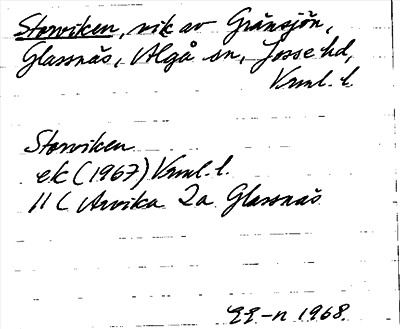 Storviken, vik av Gränsjön,
Glassnäs, Älgå sn, Jösse hd,
Vrml. l.
Storviken
ek (1967) Vrml. l.
11 C Arvika 2a Glassnäs
1968.